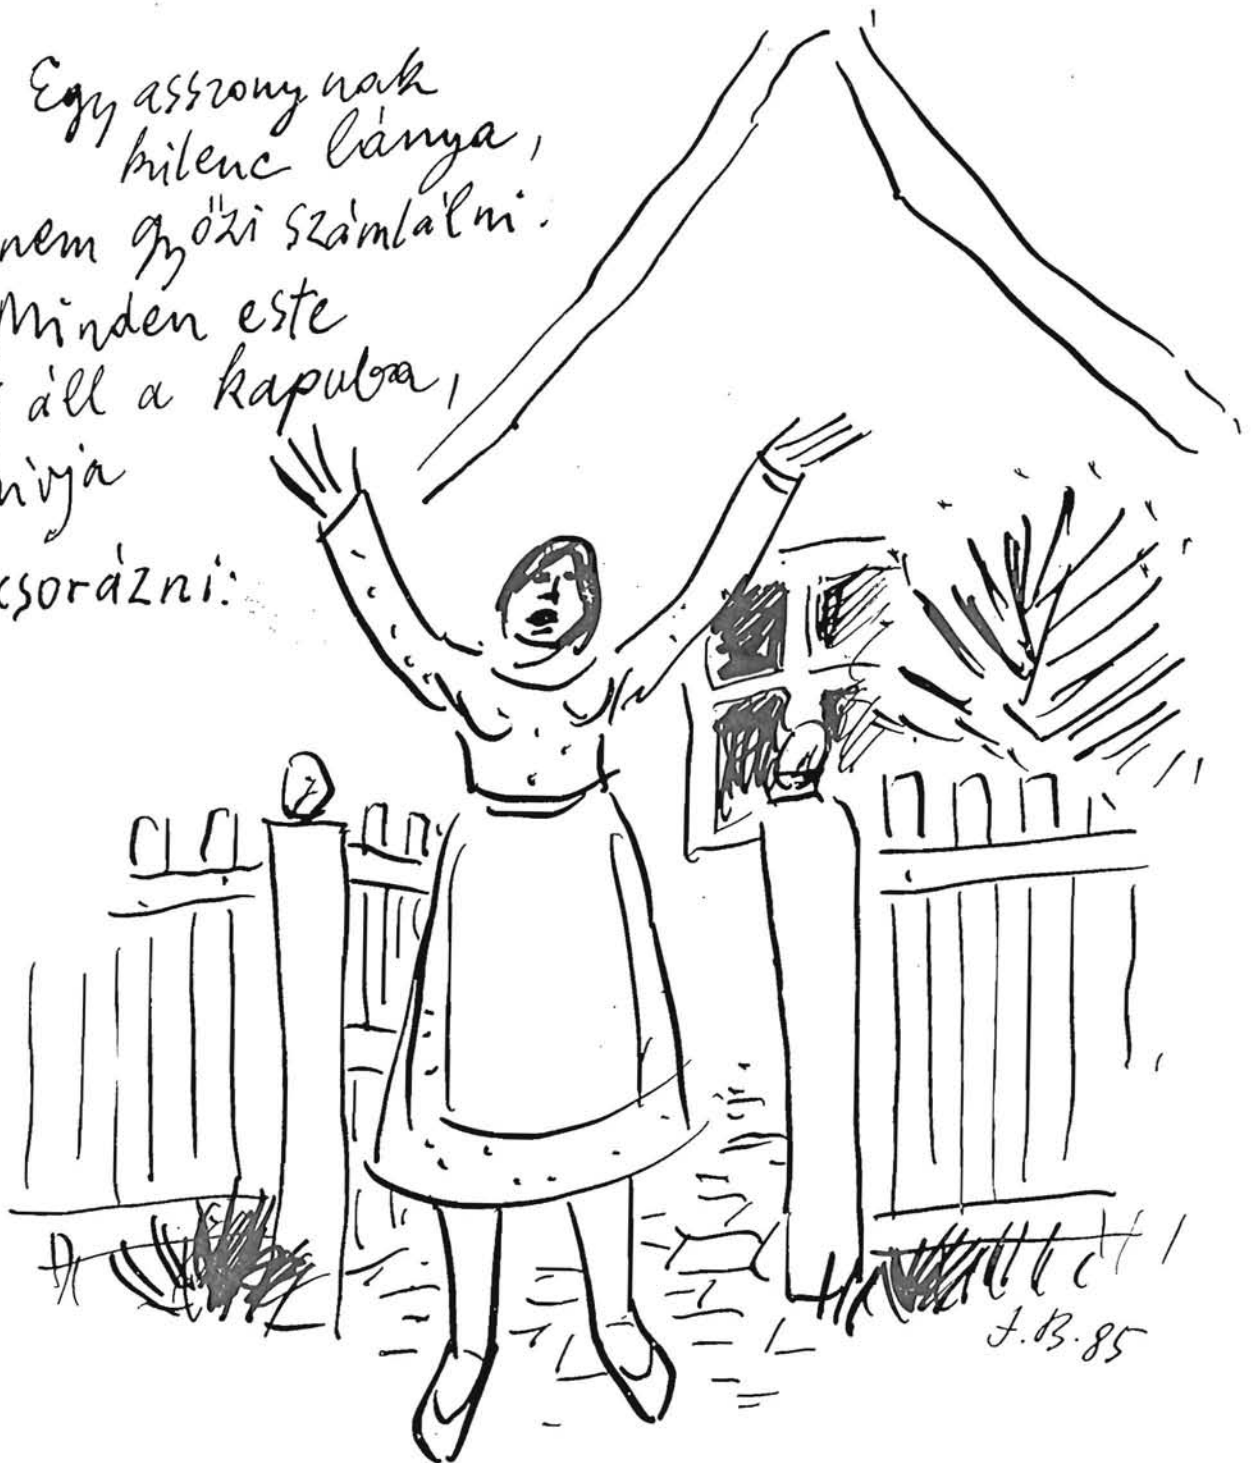 Egy asszonynak
kilenc lánya,
nem győzi számlálni.
Minden este
áll a kapuba,
hívja
csorázni:
J.B.85